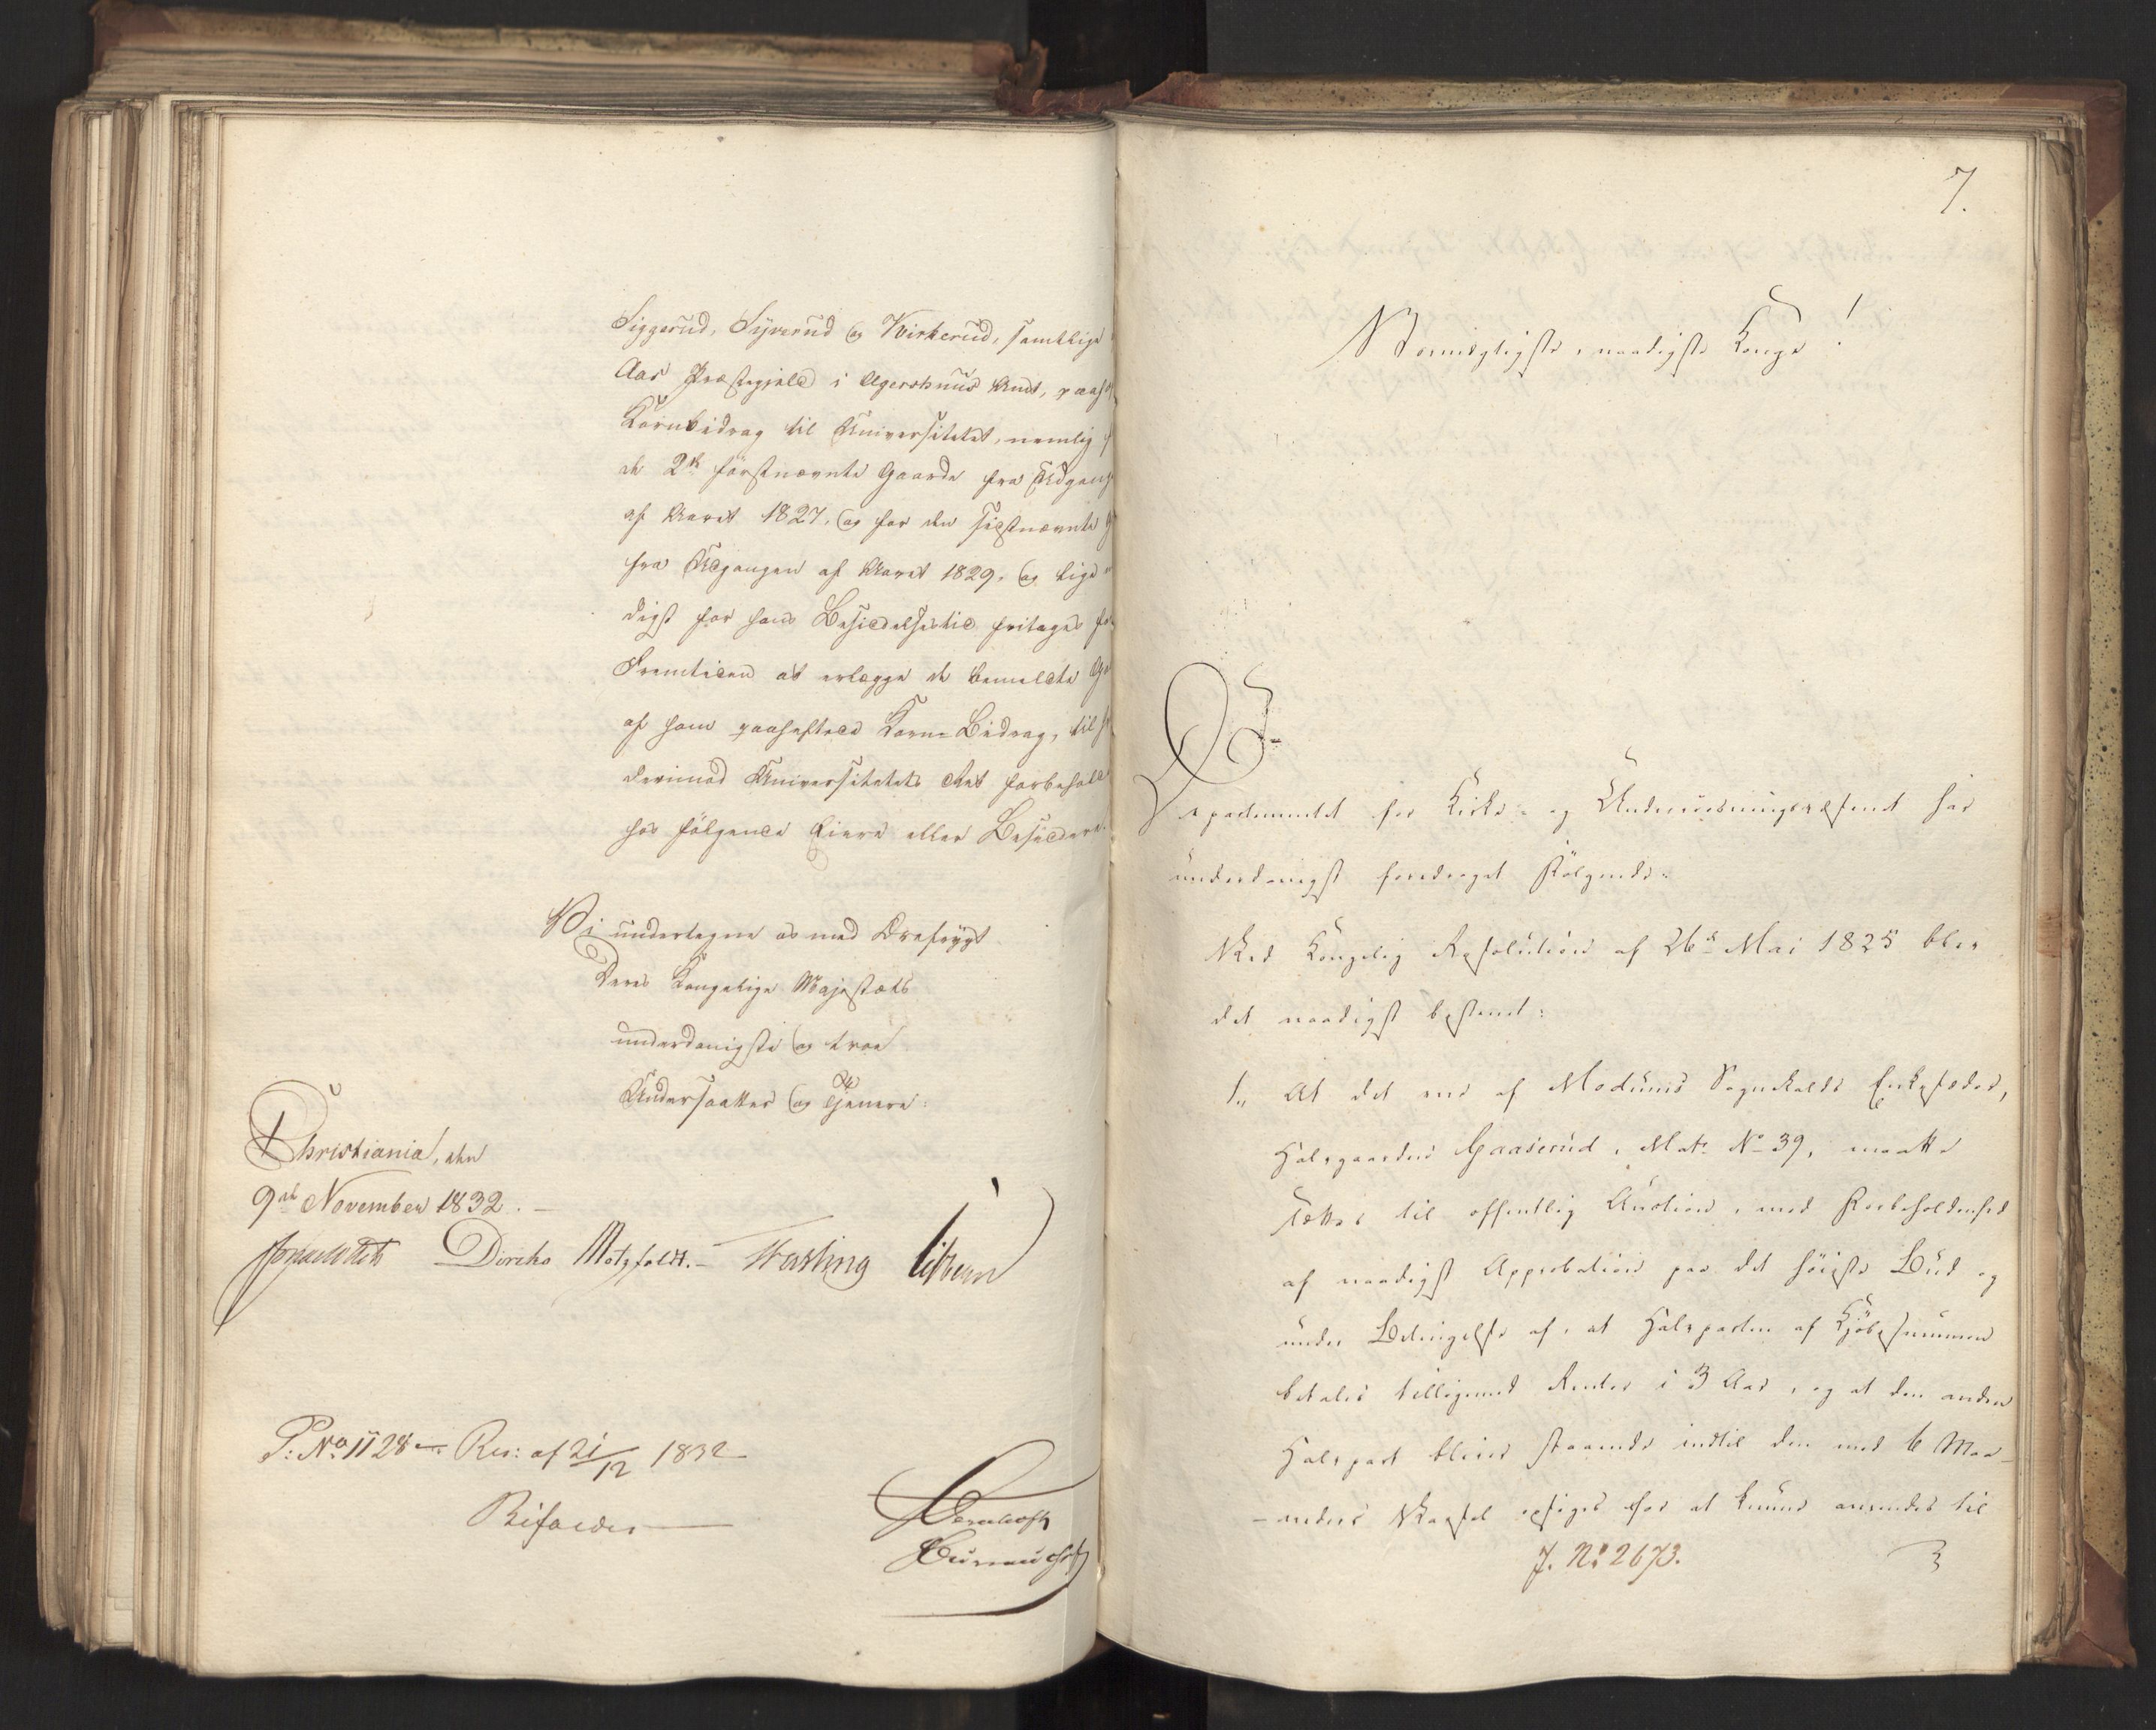 Siggerud, Syverud og Kirkerud, samtlige
Aas Præstegjeld i Agershuus Amt, paah
Kornbidrag til Universitetet, nemlig f
de 2de førstnævnte Gaarde fra Udgang
af Aaret 1827, og for den sidstnævnte G
fra Udgangen af Aaret 1829, og lige
digst for hans Besiddelsestid fritages for
Fremtiden at erlægge de bemeldte Ga
af ham paaheftede Korn-Bidrag, til
derimod Universitetets Ret forbehold
hos følgende Eiere eller Besiddere.
Vi undertegne os med Ærefrygt
Deres Kongelige Majestæts
underdanigste og troe
Undersaatter og Tjenere:
Christiania, den
9de November 1832.
Diriks Motzfeldt. Fasting
P: No 1128 Res: af 21/12 1832
Bifaldes
Bureauchef
7.
Stormægtigste, naadigste Konge!
Departementet for Kirke- og Underviisningsvæsenet har
underdanigst foredraget Følgende:
Ved Kongelig Resolution af 26de Mai 1825 blev
det naadigst bestemt:
1., At det ene af Modums Sognekalds Enkesæder,
Halvgaarden Gaaserud, Mat: No 39, maatte
sættes til offentlig Auction, med Forbeholdenhed
af naadigst Approbation paa det høieste Bud og
under Betingelse af, at Halvparten af Kjøbesummen
betales tilligemed Renter i 3 Aar, og at den anden
Halvpart bliver staaende indtil den med 6 Maa-
-neders Varsel opsiges for at kunne anvendes til
J. No 2673.